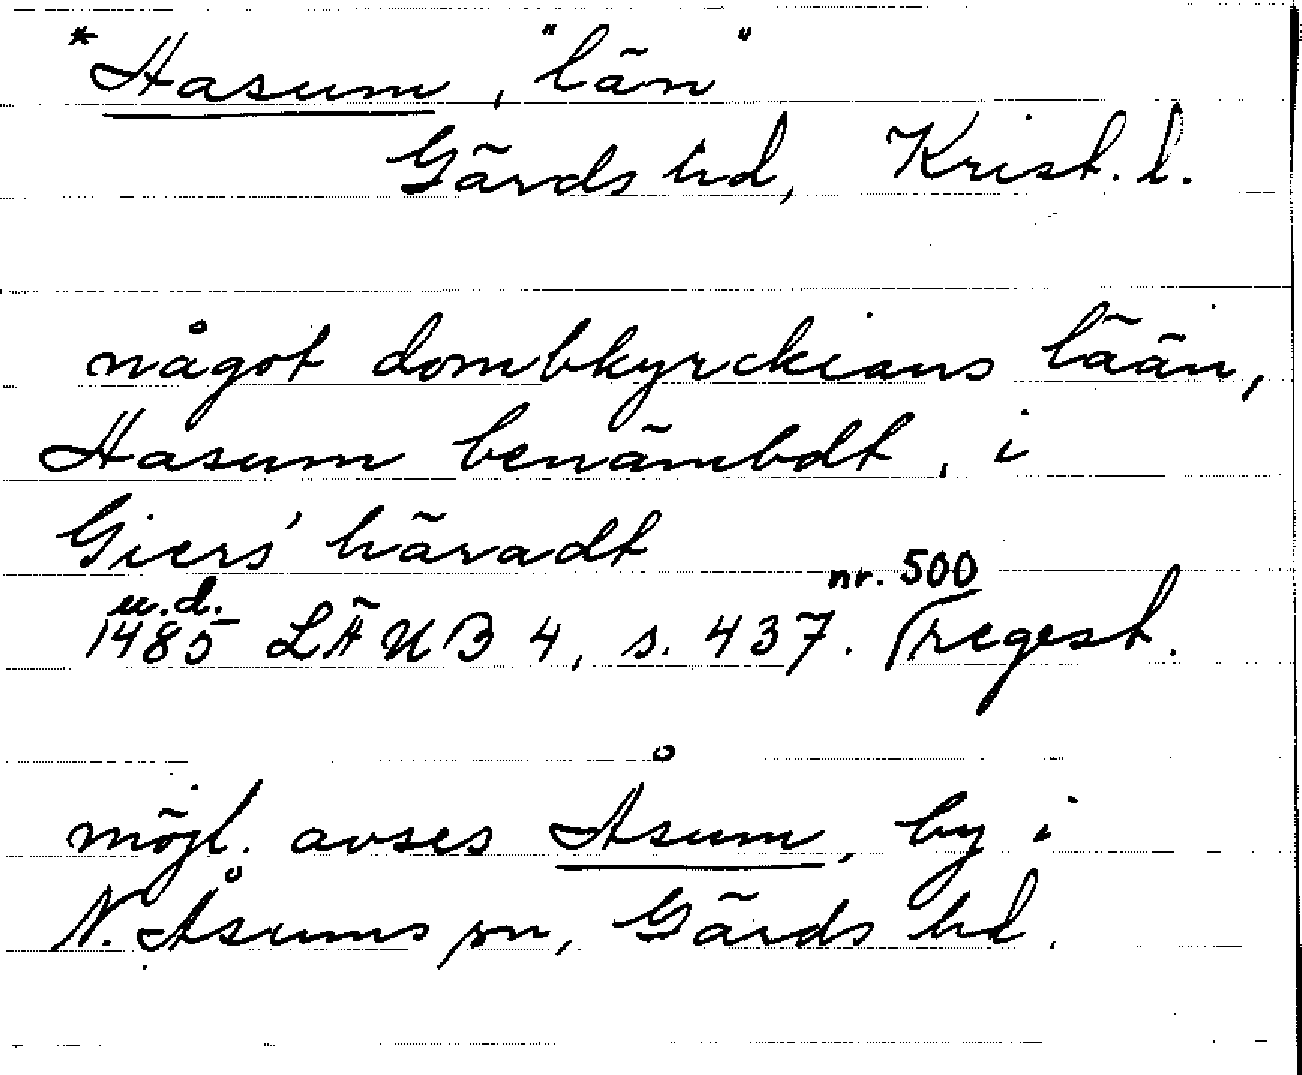 *Hasum, "län"
Gärds hd, Krist. l.
något dombkyrckians lään,
Hasum benämbdt, i
Giers' häradt
u.d. nr. 500
1485 LÄUB 4, s. 437. regest.
möjl. avses Åsum, by i
N. Åsums sn, Gärds hd.